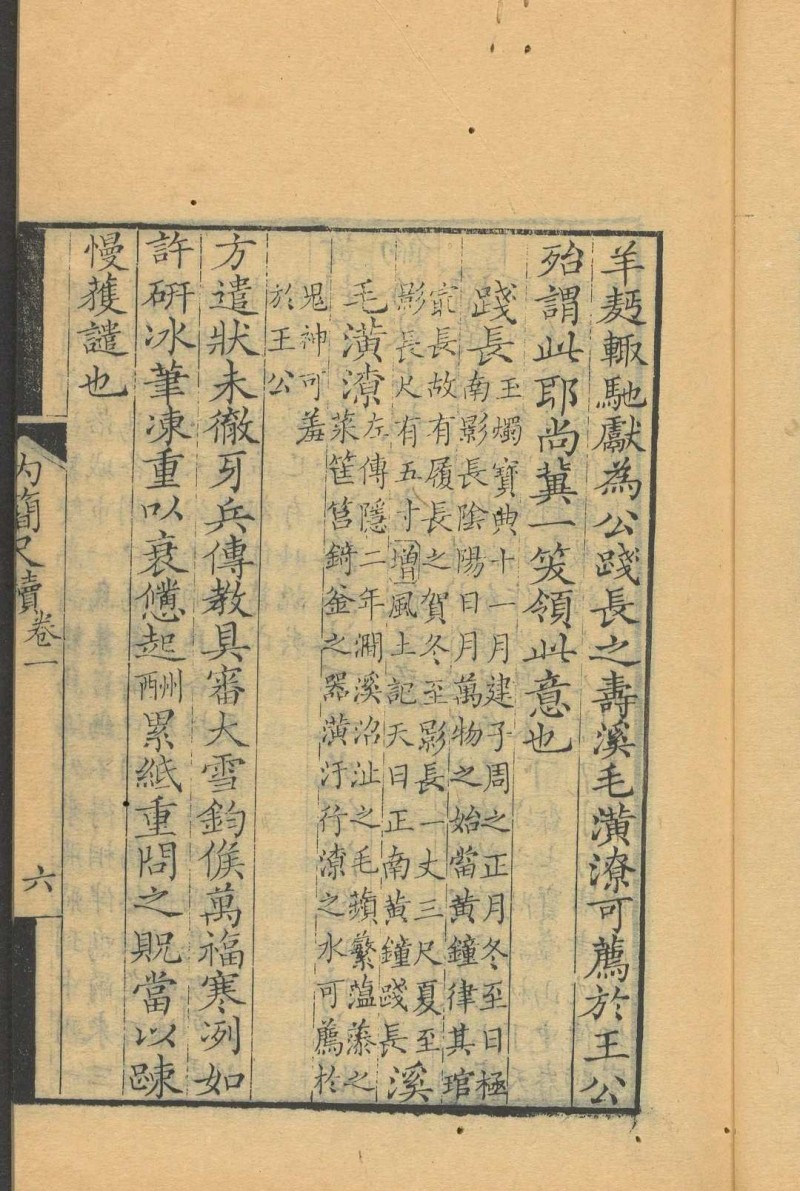 羊麪輙馳獻為公踐長之壽溪毛潢潦可薦於王公
殆謂此耶尚冀一笑領此意也
踐長
玉燭寶典十一月建子周之正月冬至日極
南影長陰陽日月萬物之始當黃鐘律其琯
冣長故有履長之賀冬至影長一丈三尺夏至
影長尺有五寸增風土記天日正南黃鐘踐長
溪
毛潢潦
左傳隱二年澗溪沼沚之毛蘋蘩薀藻之
菜筐筥錡釜之器潢汙行潦之水可薦於
鬼神可羞
於王公
方遣狀未徹牙兵傳教具審大雪鈞候萬福寒冽如
許硏冰筆凍重以衰憊起酬累紙重問之貺當以踈
慢獲譴也
內簡尺牘卷一
六